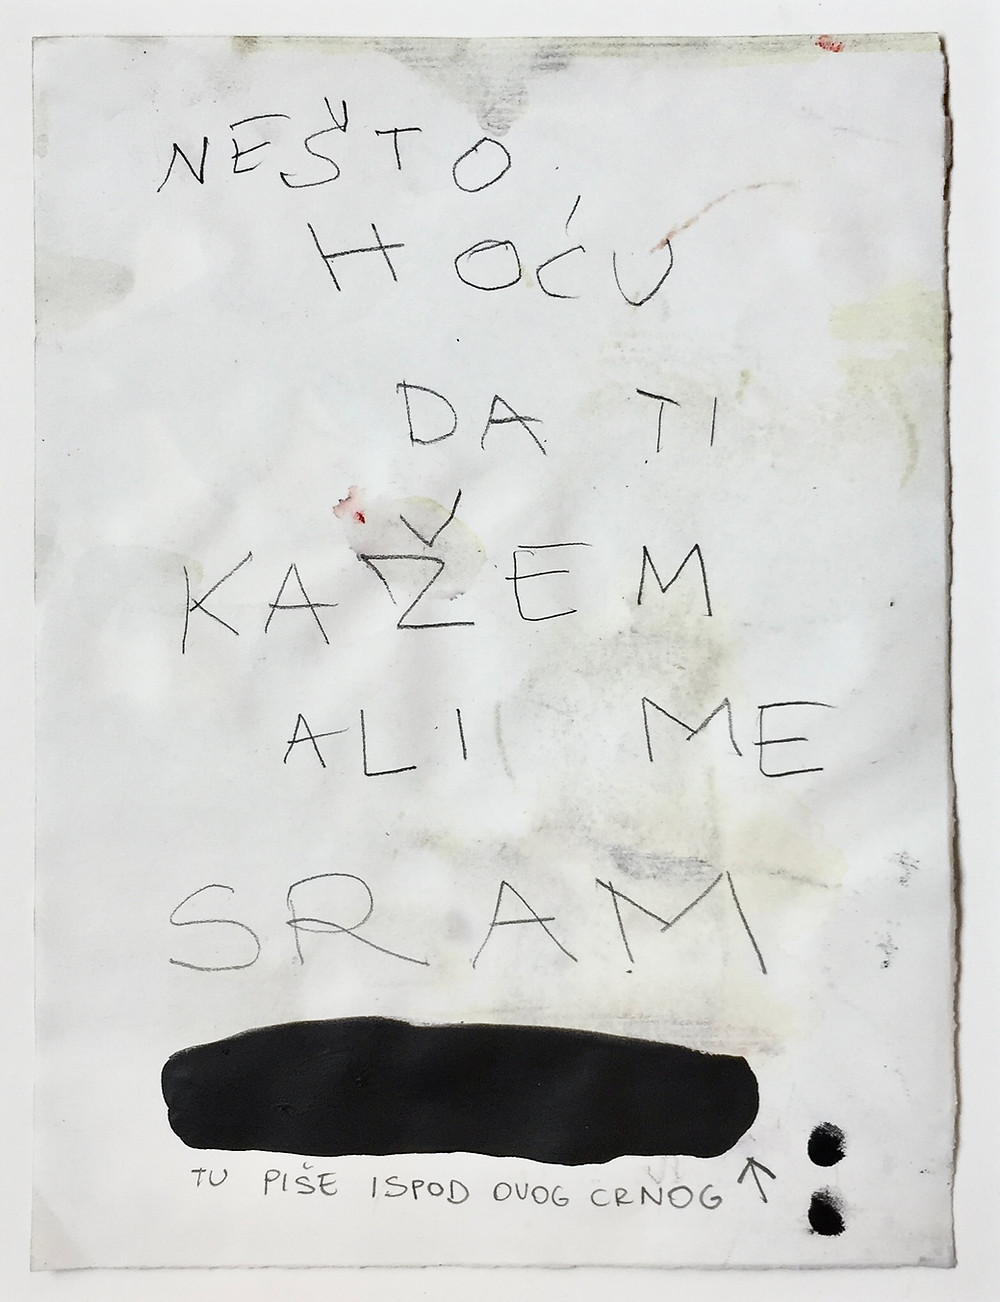 NEŠTO
HOĆU
DA TI
KAŽEM
ALI ME
SRAM
TU PIŠE ISPOD OVOG CRNOG